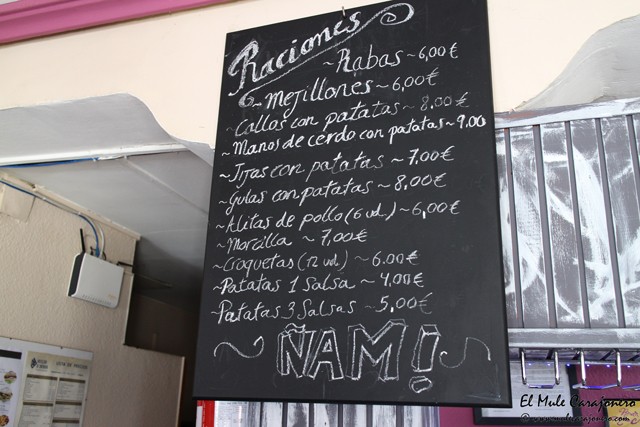 Raciones
~ Rabas ~ 6,00€
~ Mejillones ~ 6,00€
~ Callos con patatas ~ 8,00€
~ Manos de cerdo con patatas ~ 9,00
~ Jijas con patatas ~ 7,00€
~ Gulas con patatas ~ 8,00€
~ Alitas de pollo (6 ud.) ~ 6,00€
~ Morcilla ~ 7,00€
~ Croquetas (12 ud.) ~ 6.00€
~ Patatas 1 Salsa ~ 4,00€
~ Patatas 3 Salsas ~ 5,00€
~ ÑAM! ~
El Mule Carajonero
© www.mulecarajonero.com